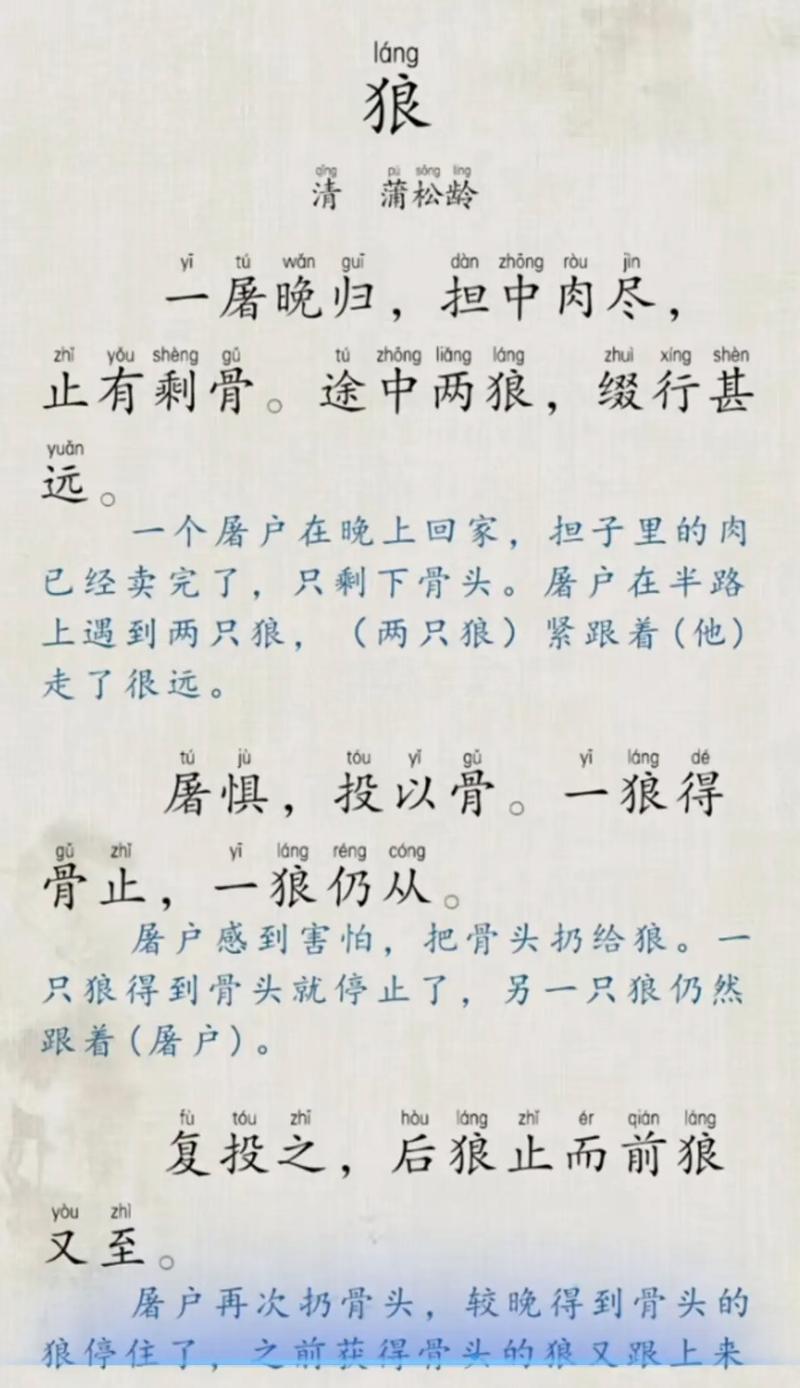 láng
狼
qīng pú sōng líng
清 蒲松龄
yī tú wǎn guī dàn zhōng ròu jìn
一屠晚归，担中肉尽，
zhǐ yǒu shèng gǔ tú zhōng liǎng láng zhuì xíng shèn
止有剩骨。途中两狼，缀行甚
yuǎn
远。
一个屠户在晚上回家，担子里的肉
已经卖完了，只剩下骨头。屠户在半路
上遇到两只狼，（两只狼）紧跟着(他)
走了很远。
tú jù tóu yǐ gǔ yī láng dé
屠惧，投以骨。一狼得
gǔ zhǐ yī láng réng cóng
骨止，一狼仍从。
屠户感到害怕，把骨头扔给狼。一
只狼得到骨头就停止了，另一只狼仍然
跟着(屠户)。
fù tóu zhī hòu láng zhǐ ér qián láng
复投之，后狼止而前狼
yòu zhì
又至。
屠户再次扔骨头，较晚得到骨头的
狼停住了，之前获得骨头的狼又跟上来